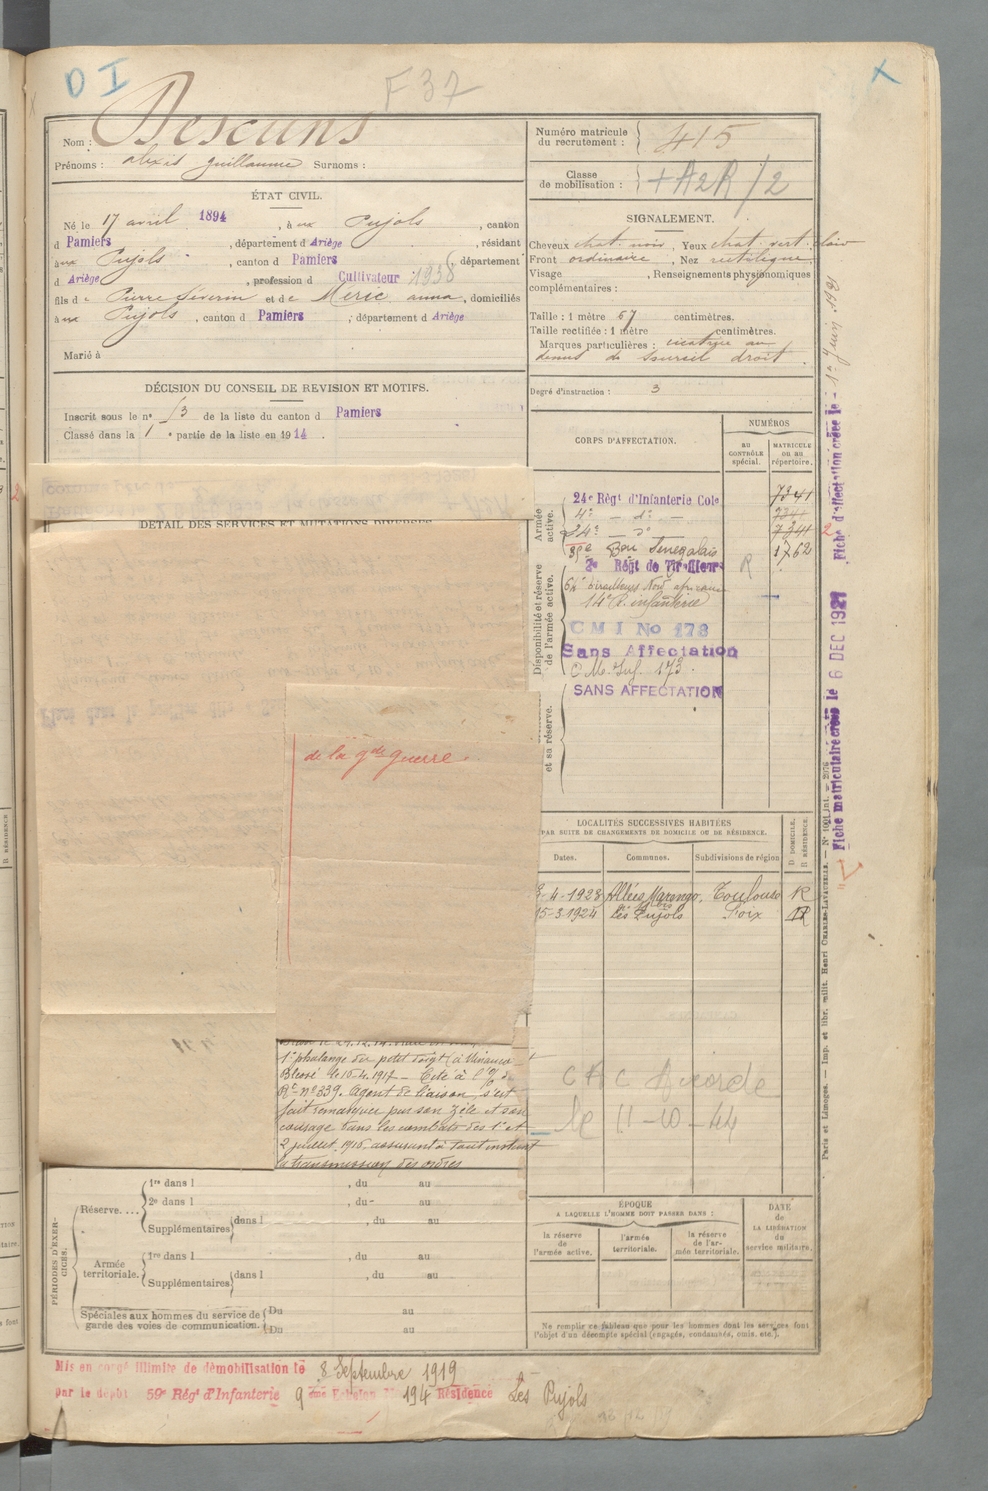 D I
F 37
X
Nom : Descuns
Prénoms : alexis guillaume Surnoms :
ÉTAT CIVIL.
Né le 17 avril 1894, à aux Pujols, canton
d Pamiers, département d Ariège, résidant
à aux Pujols, canton d Pamiers, département
d Ariège, profession d Cultivateur 1938
fils de Pierre Séverin et de Méric anna, domiciliés
à aux Pujols, canton d Pamiers, département d Ariège
Marié à
DÉCISION DU CONSEIL DE REVISION ET MOTIFS.
Inscrit sous le n° 53 de la liste du canton d Pamiers
Classé dans la 1e partie de la liste en 1914.
DÉTAIL DES SERVICES ET MUTATIONS DIVERSES
de la gde guerre.
1e phalange du petit doigt (à Minaucourt
Blessé le 16-4-1917 – Cité à l'O/ du
Rt n° 339. Agent de liaison, s'est
fait remarquer par son zèle et son
courage dans les combats des 1er et
2 juillet 1916 assurant à tout instant
la transmission des ordres
PÉRIODES D'EXERCICES.
Réserve....
1re dans l , du au
2e dans l , du au
Supplémentaires dans l , du au
Armée territoriale.
1re dans l , du au
Supplémentaires dans l , du au
Spéciales aux hommes du service de garde des voies de communication.
Du au
Du au
Mis en congé illimité de démobilisation le 8 Septembre 1919
par le dépôt 59e Régt d'Infanterie 9 ème Echelon N° 194 Résidence Les Pujols
Numéro matricule du recrutement : 415
Classe de mobilisation : + A2R/2
SIGNALEMENT.
Cheveux chat. noir, Yeux chat. vert. clair
Front ordinaire, Nez rectiligne
Visage , Renseignements physionomiques
complémentaires :
Taille : 1 mètre 67 centimètres.
Taille rectifiée : 1 mètre centimètres.
Marques particulières : cicatrice au
dessus du sourcil droit.
Degré d'instruction : 3
CORPS D'AFFECTATION.
NUMÉROS
AU CONTRÔLE spécial.
MATRICULE OU AU RÉPERTOIRE.
Armée active.
24e Régt d'Infanterie Cole 7341
4e — d° — 7341
24e — d° 7341
35e Bon Sénégalais 1762
Disponibilité et réserve de l'armée active.
2e Régt de Tirailleurs R
64e tirailleurs Nord africains
14e R. infanterie
CMI No 173
Sans Affectation
C M. Inf. 173.
et sa réserve.
SANS AFFECTATION
LOCALITÉS SUCCESSIVES HABITÉES
PAR SUITE DE CHANGEMENTS DE DOMICILE OU DE RÉSIDENCE.
Dates. Communes. Subdivisions de région D. DOMICILE. R. RÉSIDENCE.
-4-1923 Allées Marengo, Toulouse R
15-3-1924 Les Pujols Foix R
CAC Accordé
le 11-10-44
ÉPOQUE
A LAQUELLE L'HOMME DOIT PASSER DANS :
la réserve de l'armée active.
l'armée territoriale.
la réserve de l'armée territoriale.
DATE de LA LIBÉRATION du service militaire.
Ne remplir ce tableau que pour les hommes dont les services font
l'objet d'un décompte spécial (engagés, condamnés, omis, etc.).
Fiche d'affectation créée le 1er juin 1921
Fiche matriculaire créée le 6 DEC 1927
Paris et Limoges. — Imp. et libr. milit. Henri CHARLES-LAVAUZELLE.